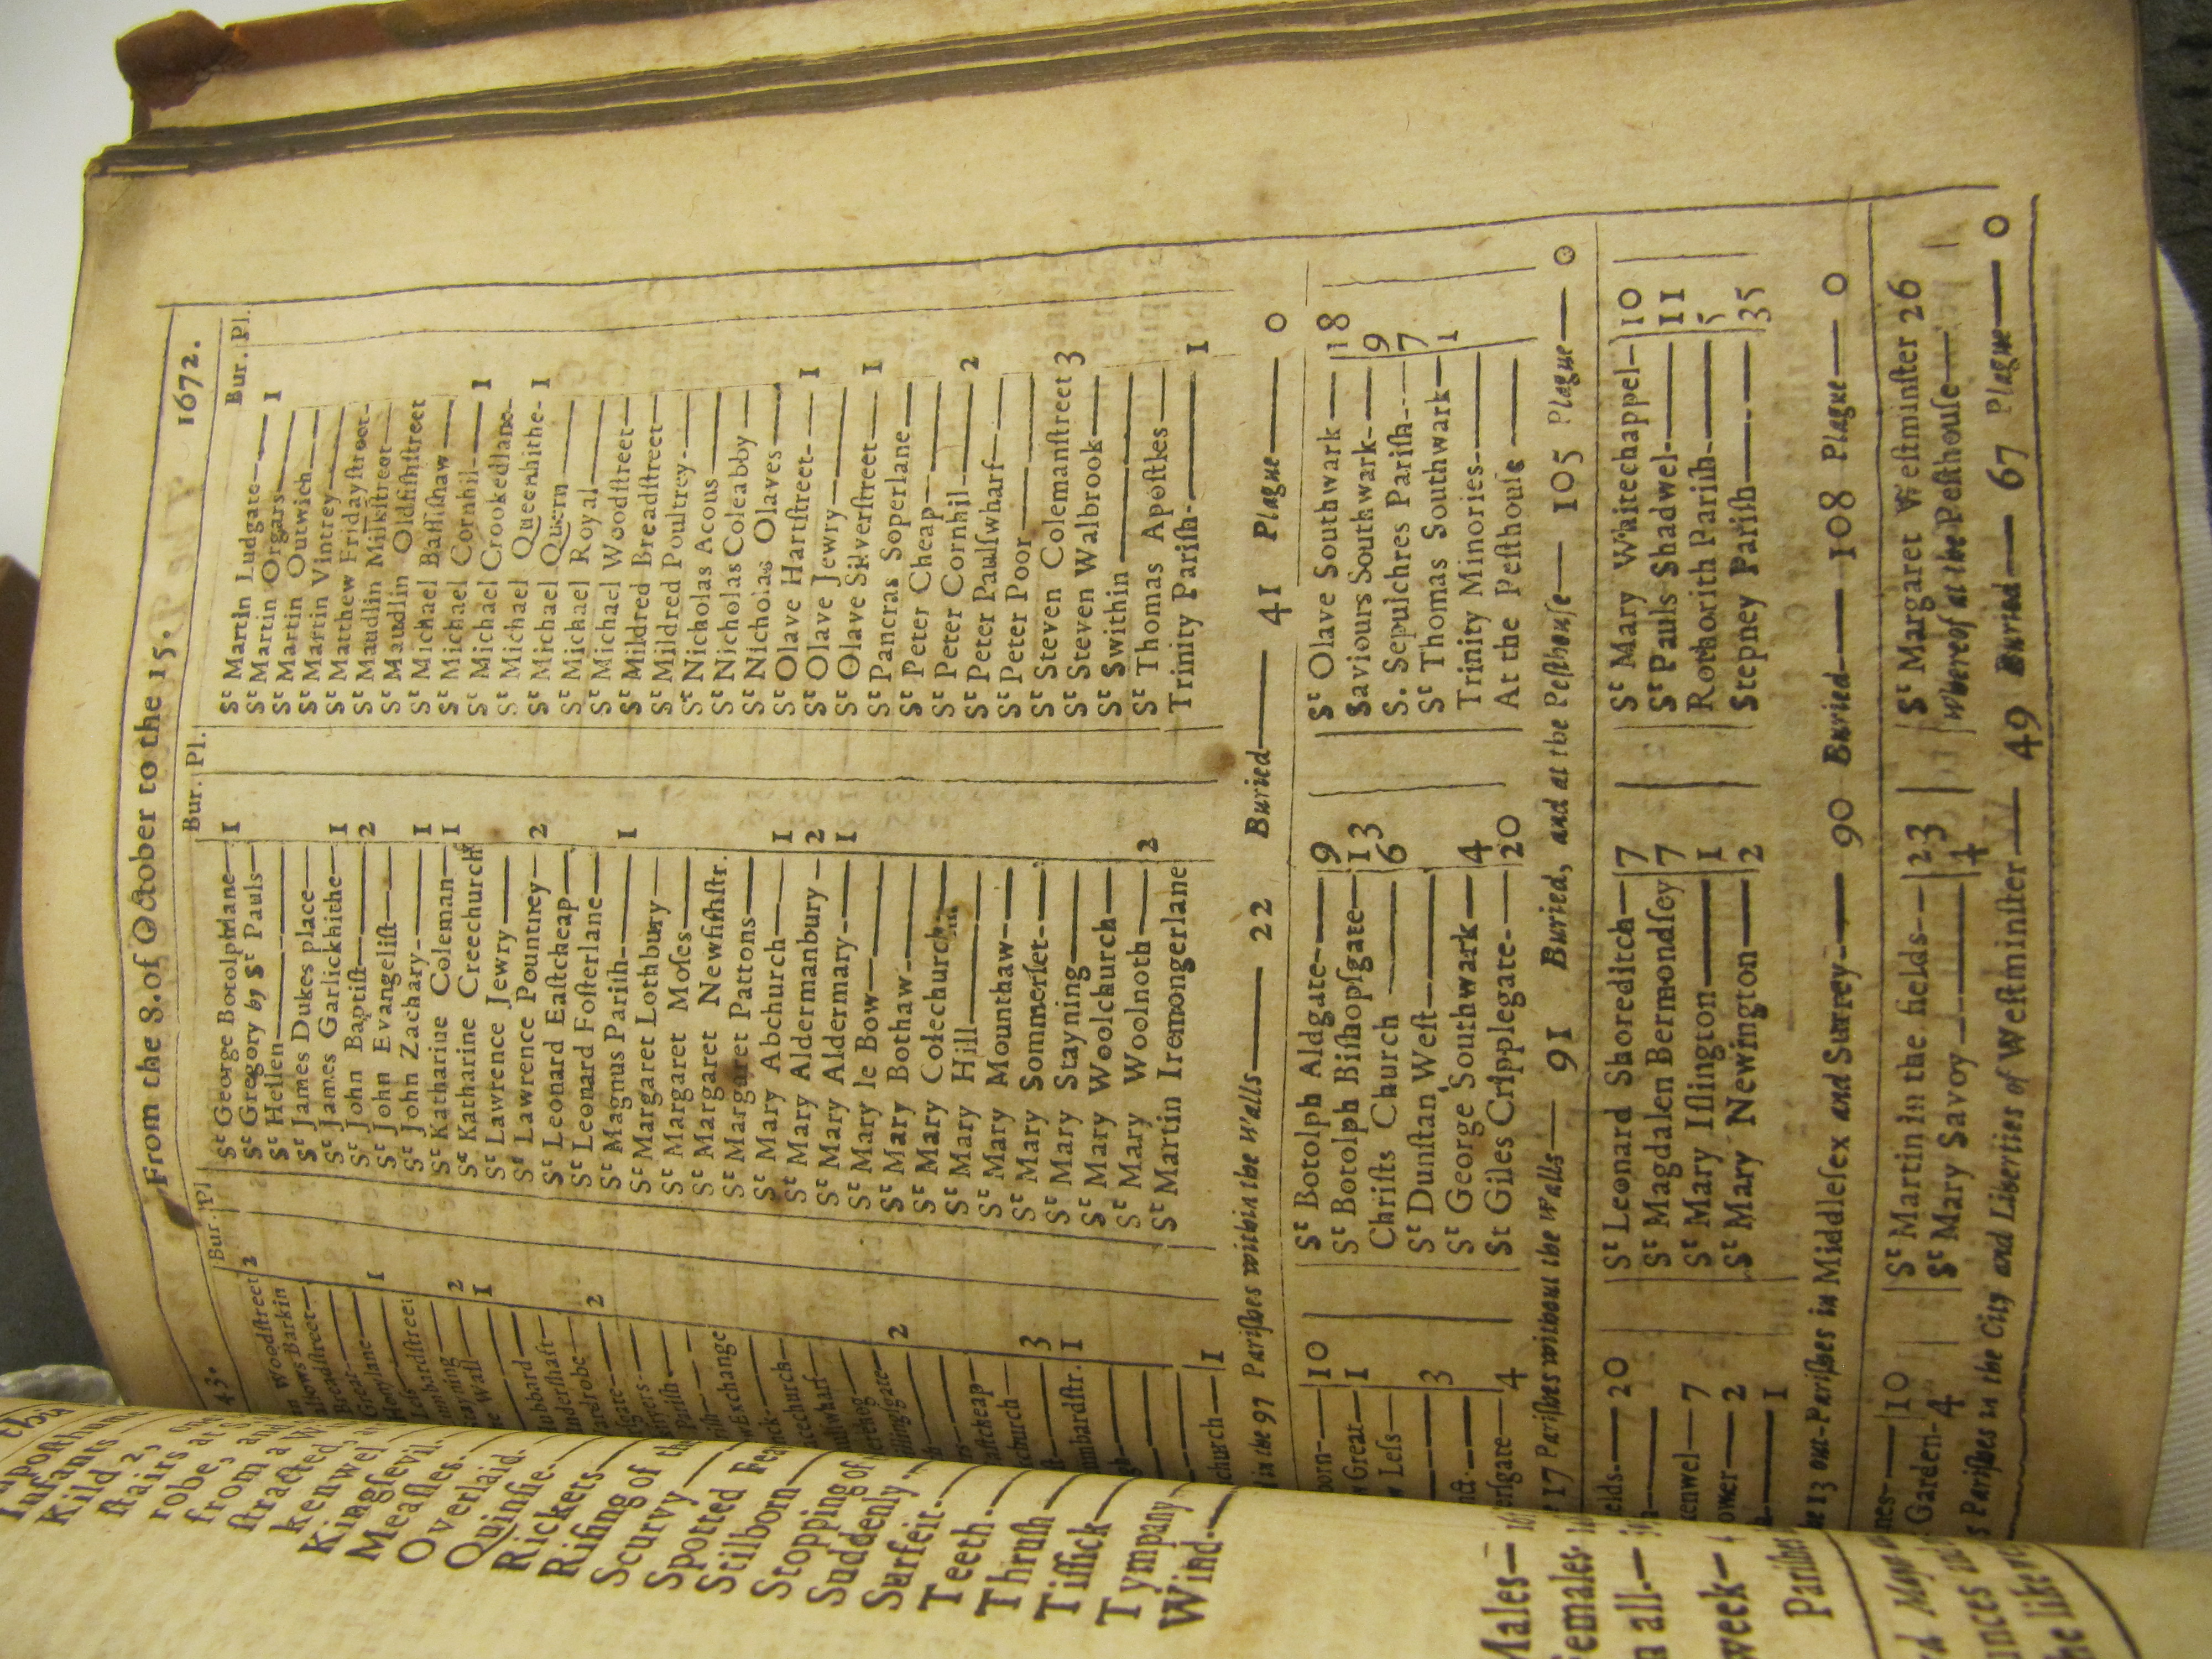 43. From the 8. of October to the 15. 1672.
Bur. Pl. Bur. Pl. Bur. Pl.
Woodſtreet 2
Barkin
Breadſtreet
Great
Honylane 1
Leſs
Lumbardſtreet
Stayning 2
Wall 1
Hubbard
Underſhaft
Wardrobe 2
Pariſh
Exchange
2
Eaſtcheap
church
3
Lumbardſtr. 1
church 1
St George Botolphlane 1
St Gregory by St Pauls 1
St Hellen
St James Dukes place
St James Garlickhithe 1
St John Baptiſt 2
St John Evangeliſt
St John Zachary 1
St Katharine Coleman 1
St Katharine Creechurch
St Lawrence Jewry
St Lawrence Pountney 2
St Leonard Eaſtcheap
St Leonard Foſterlane
St Magnus Pariſh 1
St Margaret Lothbury
St Margaret Moſes
St Margaret Newfiſhſtr.
St Margaret Pattons
St Mary Abchurch 1
St Mary Aldermanbury 2
St Mary Aldermary 1
St Mary le Bow
St Mary Bothaw
St Mary Colechurch
St Mary Hill
St Mary Mounthaw
St Mary Sommerſet
St Mary Stayning
St Mary Woolchurch
St Mary Woolnoth 2
St Martin Iremongerlane
St Martin Ludgate 1
St Martin Orgars
St Martin Outwich
St Martin Vintrey
St Matthew Fridayſtreet
St Maudlin Milkſtreet
St Maudlin Oldfiſhſtreet
St Michael Baſſiſhaw
St Michael Cornhil 1
St Michael Crookedlane
St Michael Queenhithe 1
St Michael Quern
St Michael Royal
St Michael Woodſtreet
St Mildred Breadſtreet
St Mildred Poultrey
St Nicholas Acous
St Nicholas Coleabby
St Nicholas Olaves
St Olave Hartſtreet 1
St Olave Jewry
St Olave Silverſtreet 1
St Pancras Soperlane
St Peter Cheap
St Peter Cornhil 2
St Peter Paulſwharf
St Peter Poor
St Steven Colemanſtreet 3
St Steven Walbrook
St Swithin
St Thomas Apoſtles
Trinity Pariſh 1
in the 97 Pariſhes within the Walls 22 Buried 41 Plague 0
10
Great 1
Leſs
3
4
St Botolph Aldgate 9
St Botolph Biſhopſgate 13
Chriſts Church 6
St Dunſtan Weſt
St George Southwark 4
St Giles Cripplegate 20
St Olave Southwark 18
Saviours Southwark 9
S. Sepulchres Pariſh 7
St Thomas Southwark 1
Trinity Minories
At the Peſthouſe
17 Pariſhes without the Walls 91 Buried, and at the Peſthouſe 105 Plague 0
20
7
2
1
St Leonard Shoreditch 7
St Magdalen Bermondſey 7
St Mary Iſlington 1
St Mary Newington 2
St Mary Whitechappel 10
St Pauls Shadwel 11
Rothorith Pariſh 5
Stepney Pariſh 35
13 out-Pariſhes in Middleſex and Surrey 90 Buried 108 Plague 0
10
Garden 4
St Martin in the fields 23
St Mary Savoy 4
St Margaret Weſtminſter 26
Whereof at the Peſthouſe
Pariſhes in the City and Liberties of Weſtminſter 49 Buried 67 Plague 0
Infants
Kild 2,
ſtairs
robe, at
from a
ſtracted
kenwel
Kingſevil
Meaſles
Overlaid
Quinſie
Rickets
Riſing of
Scurvy
Spotted
Stilborn
Stopping of
Suddenly
Surfeit
Teeth
Thruſh
Tiſſick
Tympany
Wind
Males
Females
all
week
Pariſhes